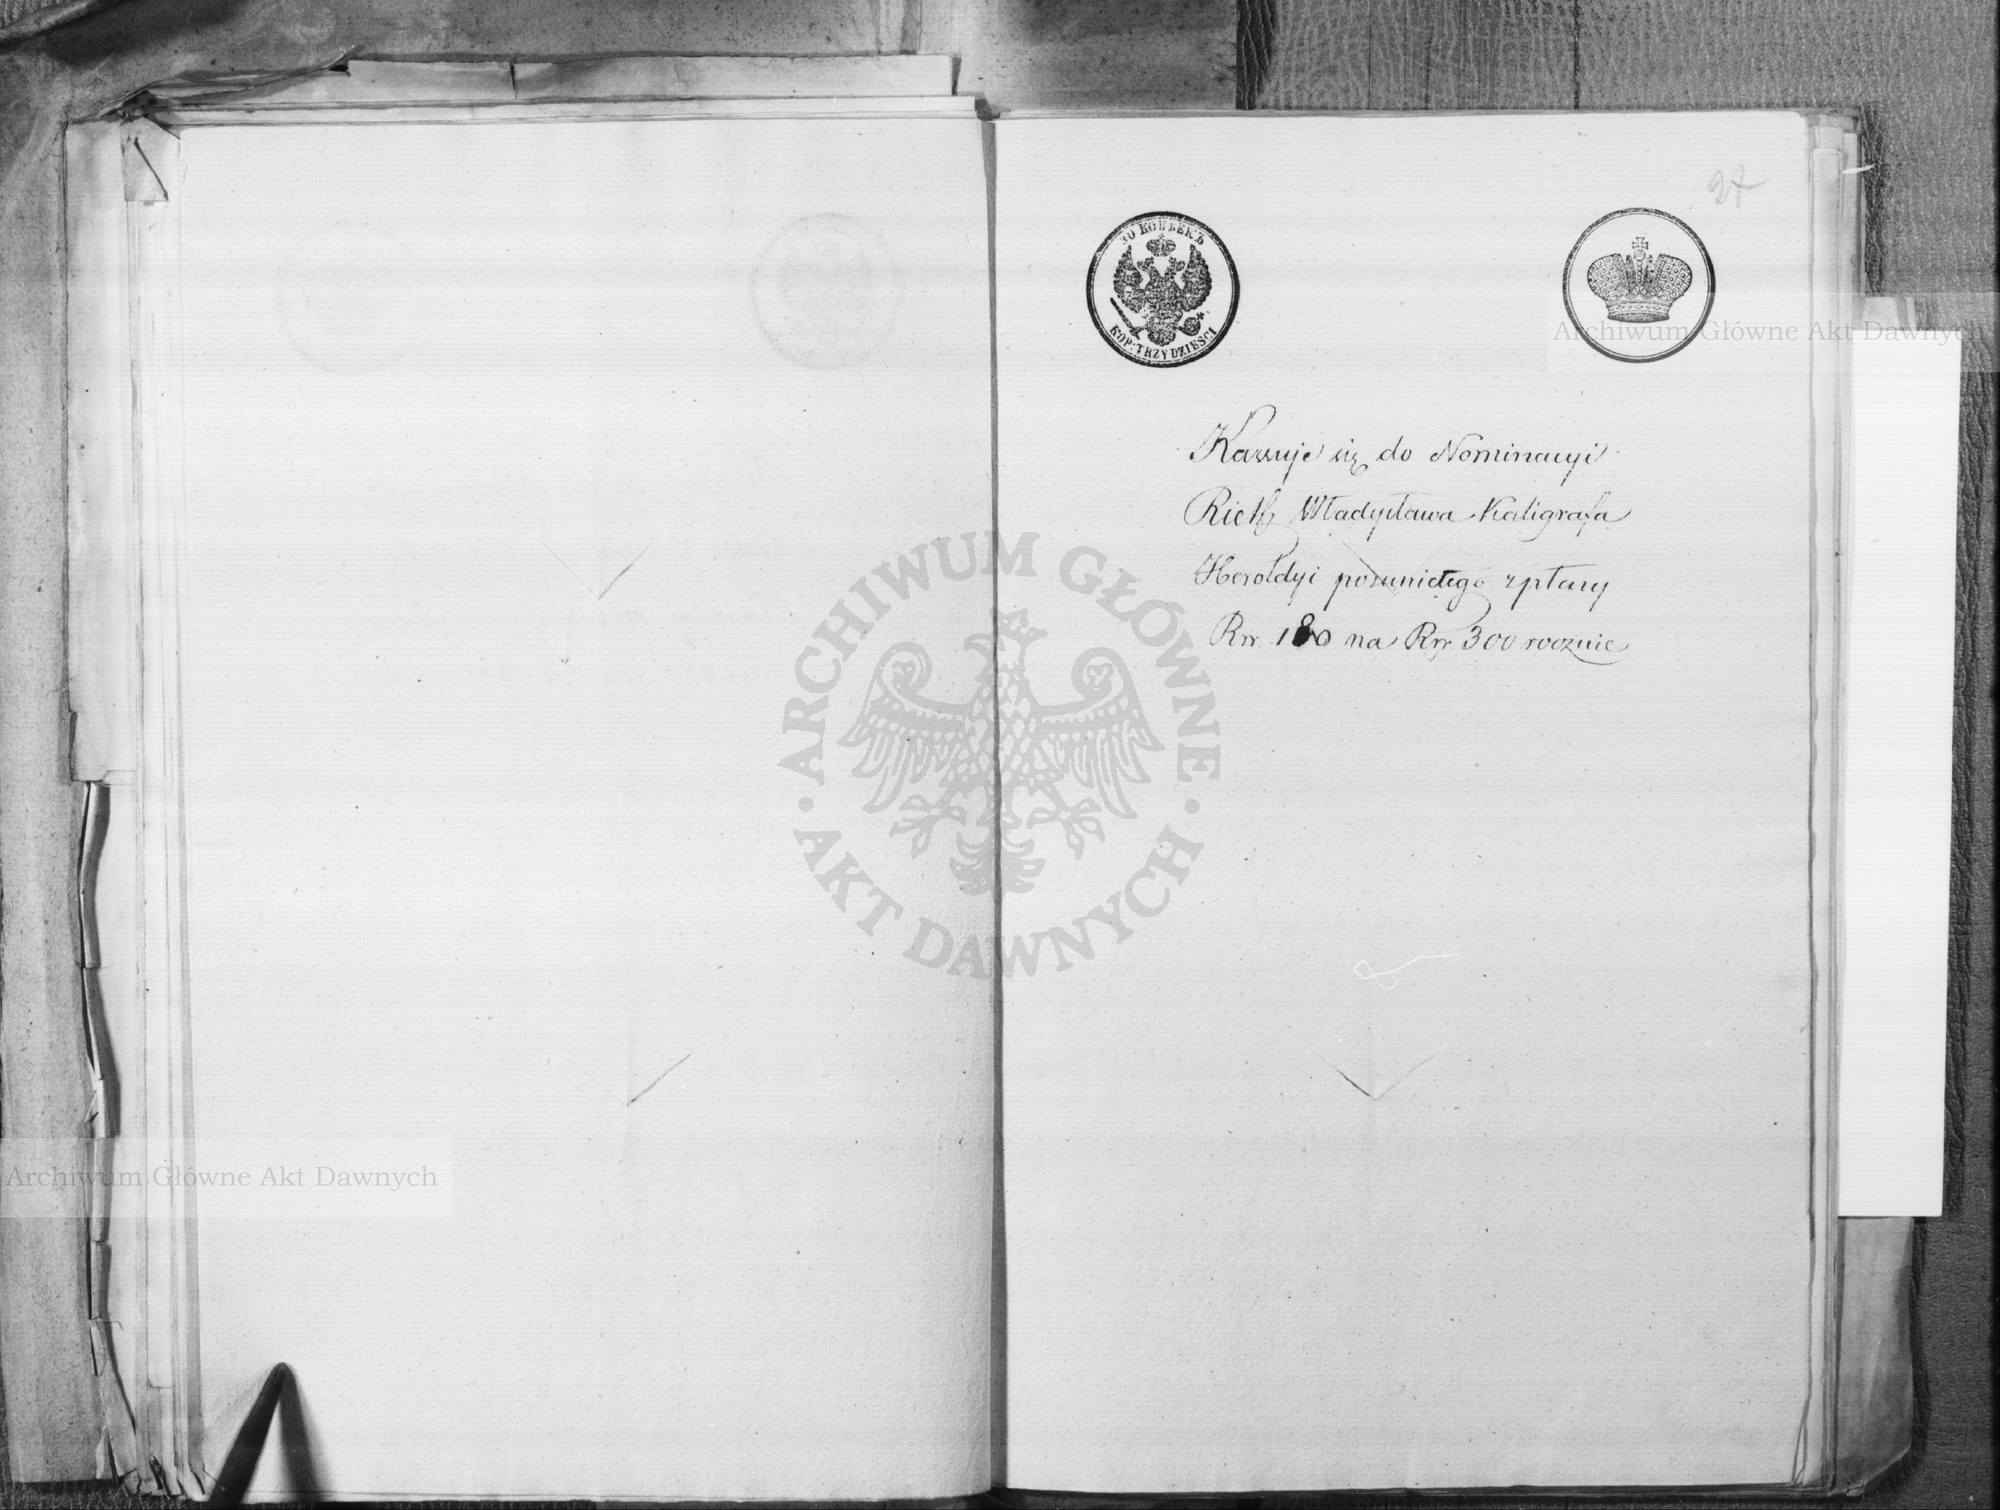 27
30 КОПѢЕКЪ
KOP: TRZYDZIEŚCI
Kassuje się do Nominacyi
Władysława Kaligrafa
Heroldyi posuniętego z płacy
Rsr. 180 na Rsr 300 rocznie
Archiwum Główne Akt Dawnych
· ARCHIWUM GŁÓWNE ·
AKT DAWNYCH
Archiwum Główne Akt Dawnych